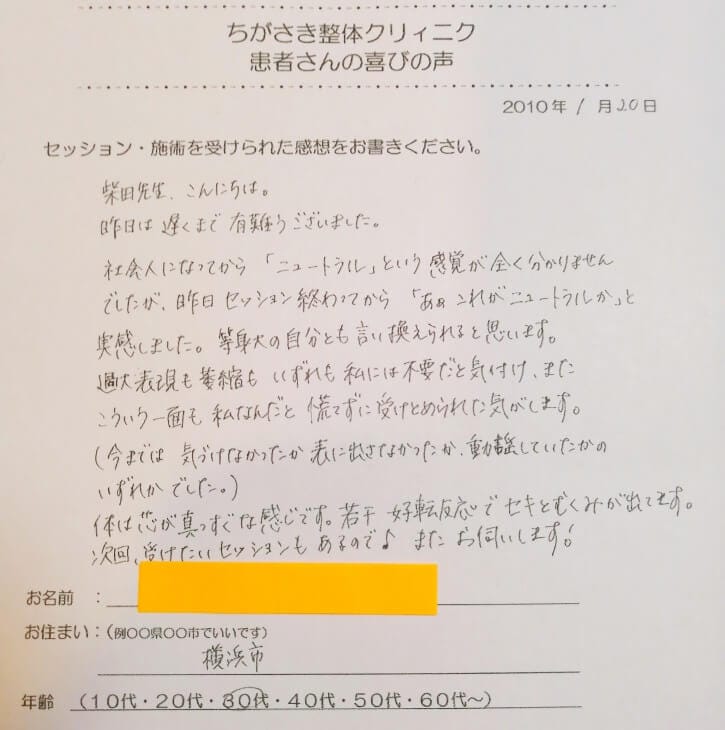 ちがさき整体クリィニク
患者さんの喜びの声
2010年 1月20日
セッション・施術を受けられた感想をお書きください。
柴田先生、こんにちは。
昨日は遅くまで有難うございました。
社会人になってから「ニュートラル」という感覚が全く分かりません
でしたが、昨日セッション終わってから「あぁこれがニュートラルか」と
実感しました。等身大の自分とも言い換えられると思います。
過大表現も萎縮もいずれも私には不要だと気付け、また
こういう一面も私なんだと慌てずに受けとめられた気がします。
(今までは気づけなかったか表に出さなかったか、動揺していたかの
いずれかでした。)
体は芯が真っすぐな感じです。若干好転反応でセキとむくみが出てます。
次回、受けたいセッションもあるので♪またお伺いします!
お名前 :
お住まい:(例〇〇県〇〇市でいいです)
横浜市
年齢 (10代・20代・30代・40代・50代・60代~)